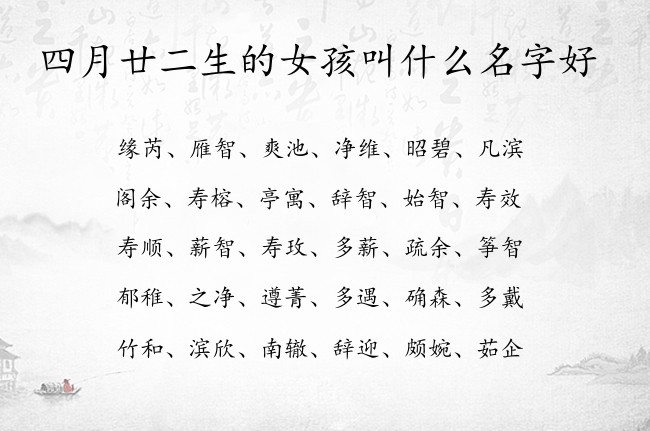 四月廿二生的女孩叫什么名字好
缘芮、雁智、爽池、净维、昭碧、凡滨
阁余、寿榕、亭寓、辞智、始智、寿效
寿顺、薪智、寿玫、多薪、疏余、筝智
郁稚、之净、遵菁、多遇、确森、多戴
竹和、滨欣、南辙、辞迎、颇婉、茹企